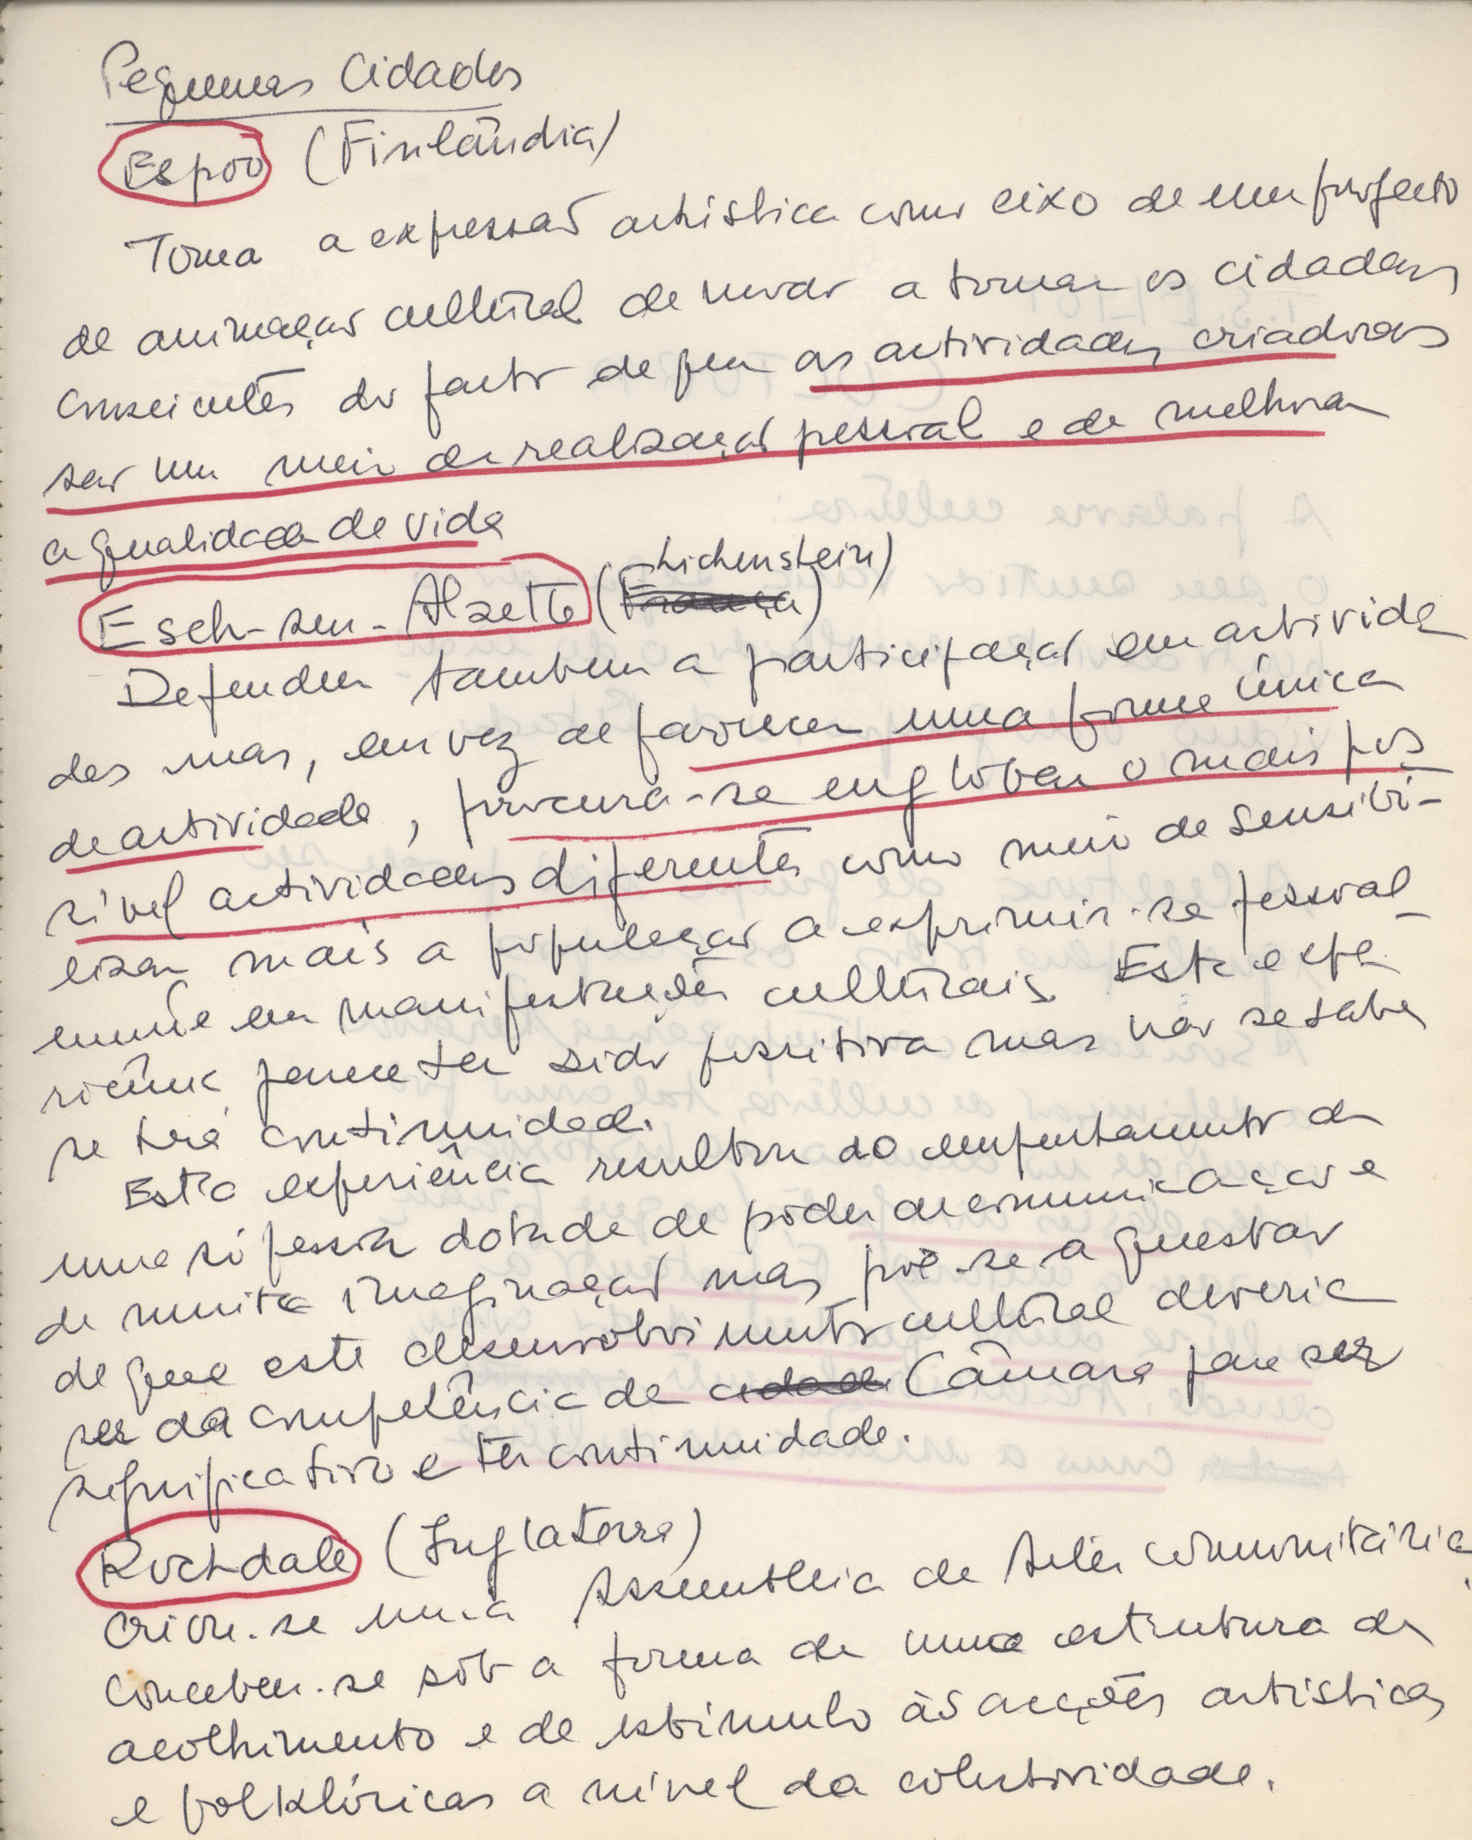 Pequenas Cidades
Espoo (Finlândia)
Toma a expressão artística como eixo de um projecto
de animação cultural de modo a tornar os cidadãos
conscientes do facto de que as actividades criadoras
ser um meio de realização pessoal e de melhorar
a qualidade de vida
Esch-sur-Alzette (França) Lichenstein)
Defendem também a participação em activida
des mas, em vez de favorecer uma forma única
de actividade, procura-se englobar o mais pos
sível actividades diferentes como meio de sensibi-
lizar mais a população a exprimir-se pessoal_
mente em manifestações culturais. Esta expe_
riência parece ter sido positiva mas não se sabe
se terá continuidade.
Esta experiência resultou do empenhamento de
uma só pessoa dotada de poder de comunicação e
de muita imaginação mas põe-se a questão
de que este desenvolvimento cultural deveria
ser da competência da cidade Câmara para ser
significativo e ter continuidade.
Rochdale (Inglaterra)
Criou-se uma Assembleia de Artes comunitária
Concebeu-se sob a forma de uma estrutura de
acolhimento e de estímulo às acções artísticas
e folklóricas a nível da colectividade.